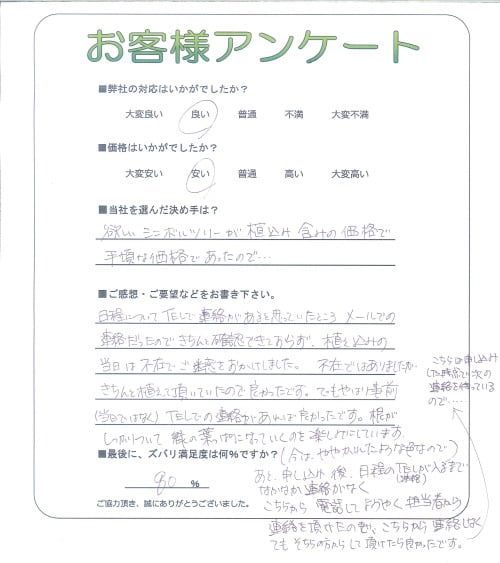 お客様アンケート
■弊社の対応はいかがでしたか？
大変良い 良い 普通 不満 大変不満
■価格はいかがでしたか？
大変安い 安い 普通 高い 大変高い
■当社を選んだ決め手は？
欲しいシンボルツリーが植込み含みの価格で
手頃な価格であったので…
■ご感想・ご要望などをお書き下さい。
日程についてTELで連絡があると思っていたところ メールでの
連絡だったのできちんと確認できておらず、植え込みの
当日は不在でご迷惑をおかけしました。 不在ではありましたが
きちんと植えて頂いていたので良かったです。でもやはり事前
(当日ではなく) TELでの連絡があれば良かったです。根が
しっかりついて 緑の葉っぱになっていくのを楽しみにしています。
(今は、ややかれたような色なので)
こちらは申し込み
した時点で次の
連絡を待っている
ので…
■最後に、ズバリ満足度は何%ですか？
80 %
ご協力頂き、誠にありがとうございました。
あと、申し込み後、日程のTELが入るまで
(連絡)
なかなか連絡がなく
こちらから電話してようやく担当者から
連絡を頂けたのも、こちらから連絡しなく
てもそちらの方からして頂けたら良かったです。